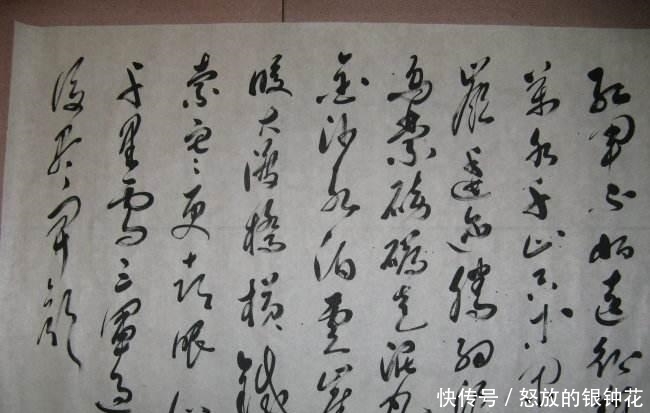 红军不怕远征
万水千山只等闲
岭逶迤腾细浪
乌蒙磅礴走泥丸
金沙水拍云崖
暖大渡橋横鐵
索寒更喜岷山
千里雪三軍過
後尽开颜
快传号 / 怒放的银钟花